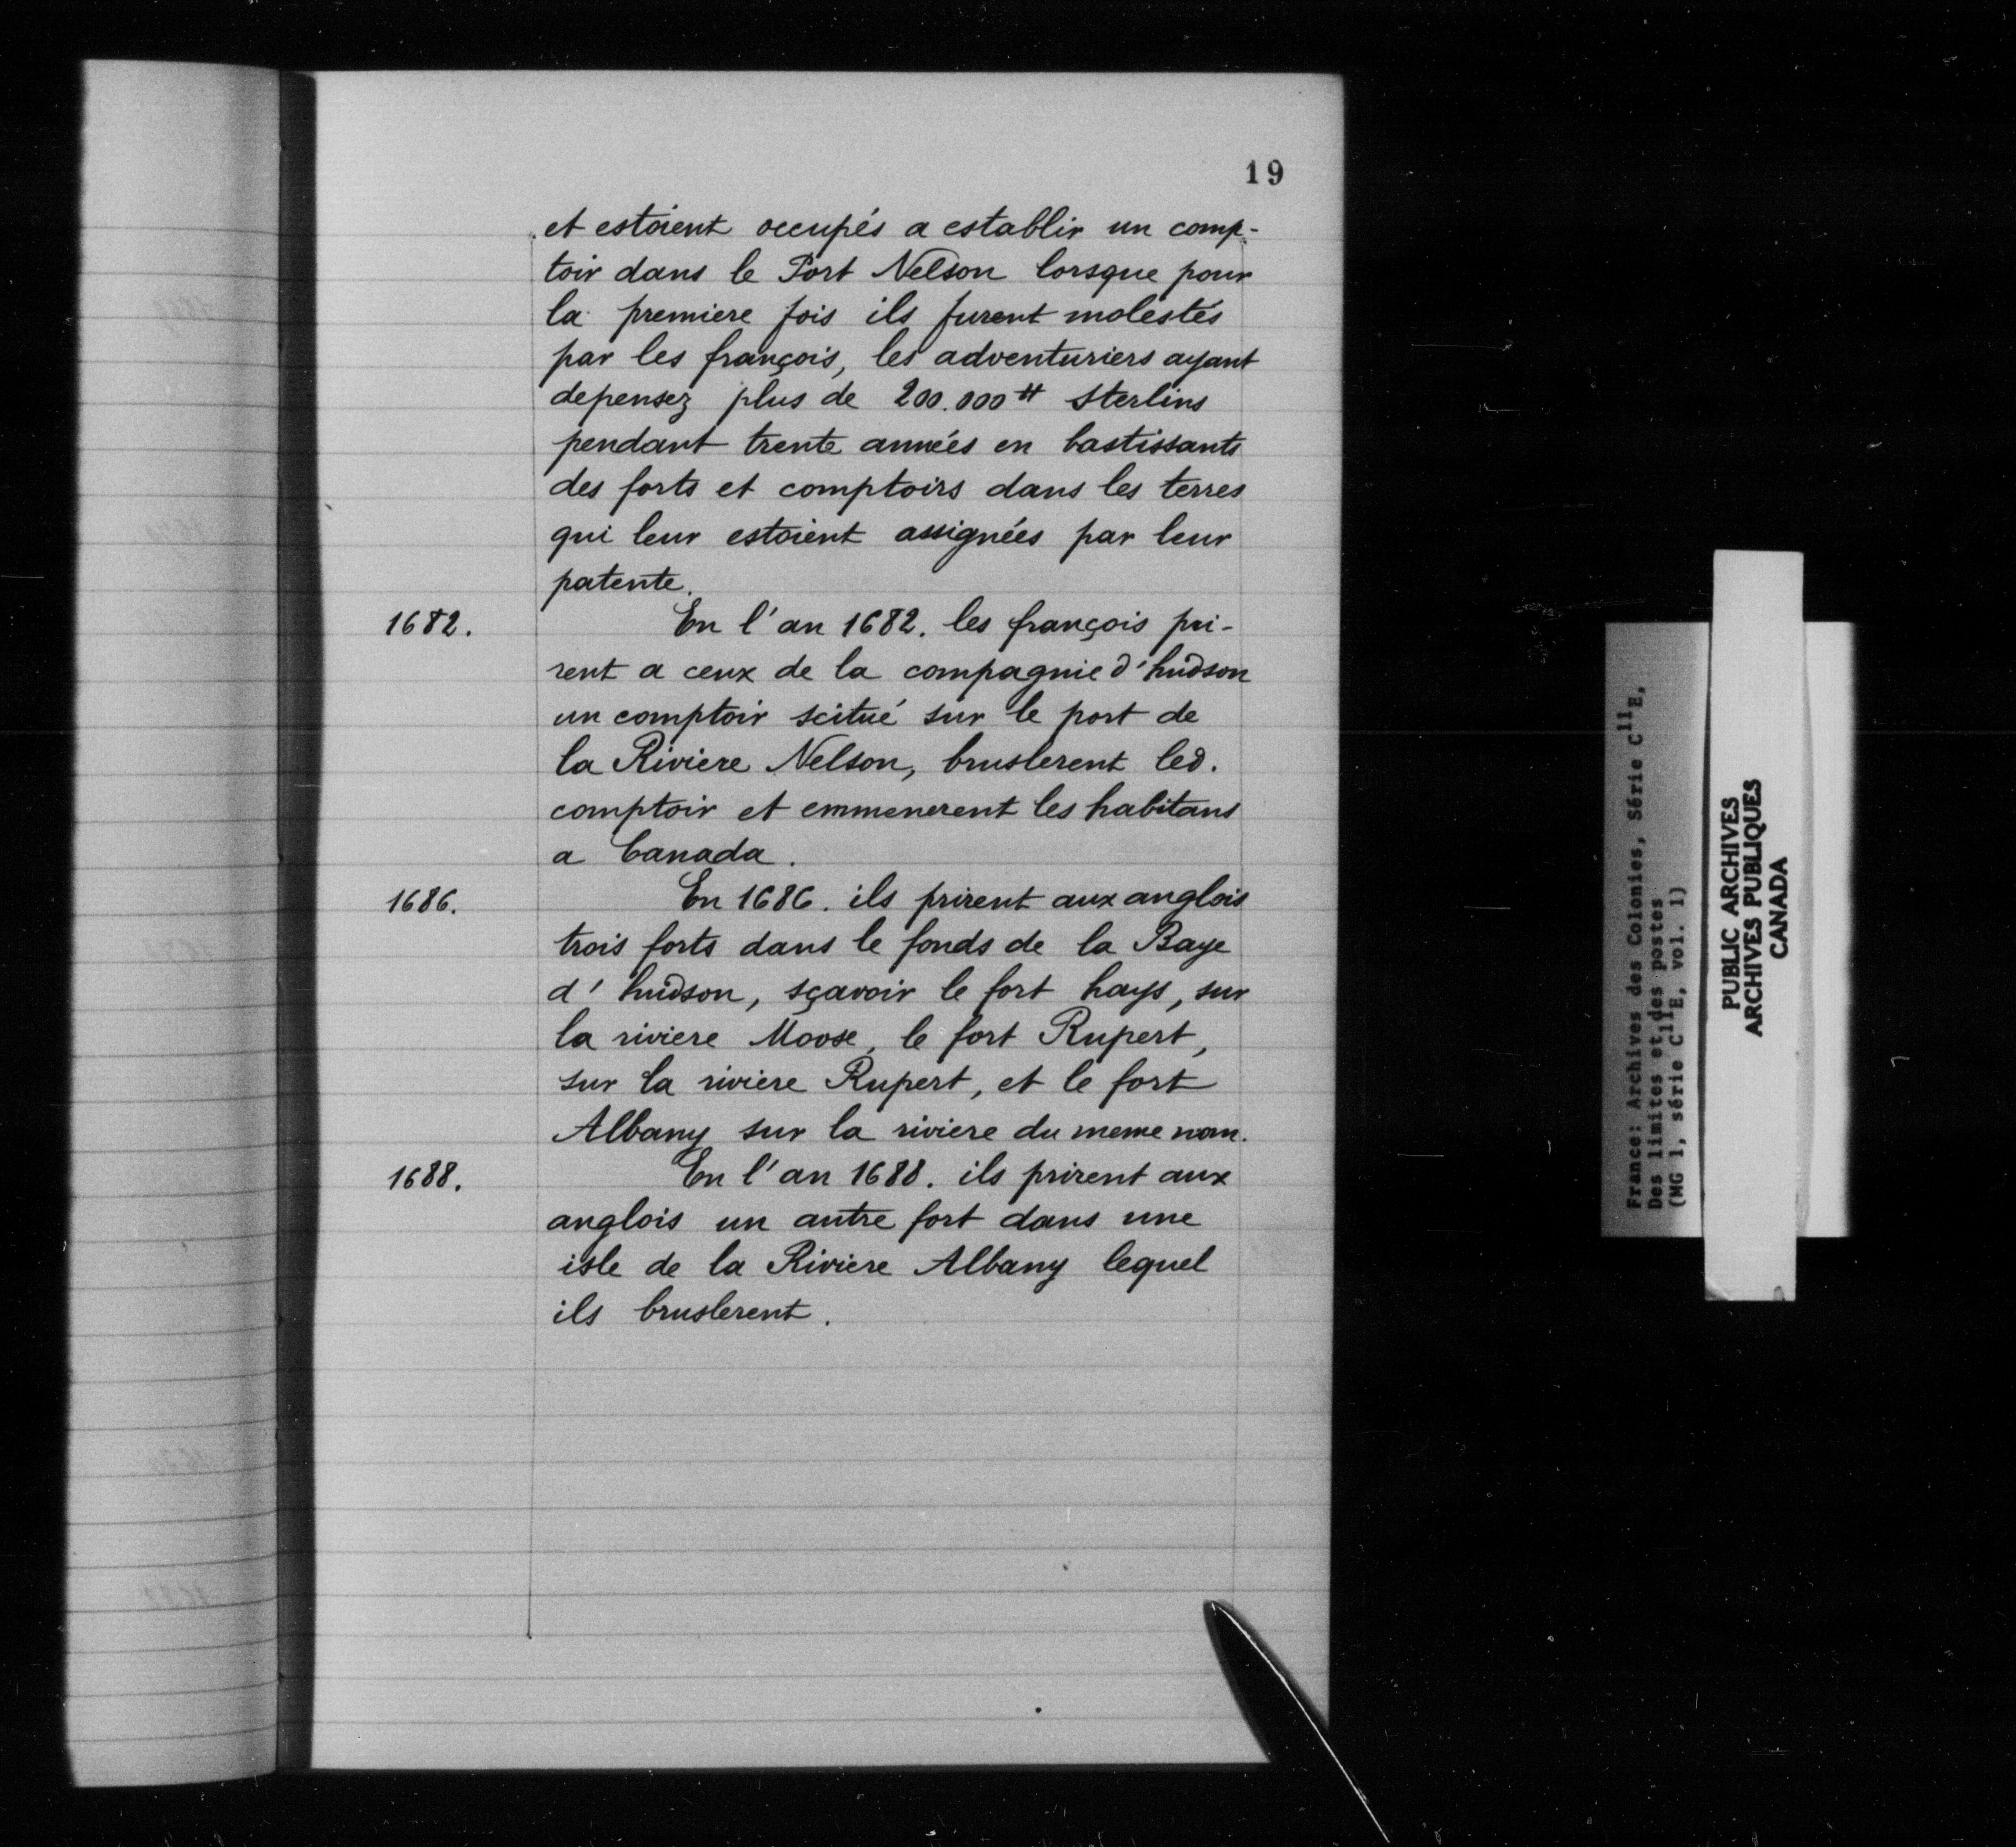 19
et estoient occupés a establir un comp-
toir dans le Port Nelson lorsque pour
la premiere fois ils furent molestés
par les françois, les adventuriers ayant
depensez plus de 200.000 ₶ Sterlins
pendant trente années en bastissants
des forts et comptoirs dans les terres
qui leur estoient assignées par leur
patente.
1682. En l'an 1682. les françois pri-
rent a ceux de la compagnie d'hudson
un comptoir scitué sur le port de
la Riviere Nelson, bruslerent led.
comptoir et emmenerent les habitans
a Canada.
1686. En 1686. ils prirent aux anglois
trois forts dans le fonds de la Baye
d'hudson, sçavoir le fort hays, sur
la riviere Moose, le fort Rupert,
sur la riviere Rupert, et le fort
Albany sur la riviere du meme nom.
1688. En l'an 1688. ils prirent aux
anglois un autre fort dans une
isle de la Riviere Albany lequel
ils bruslerent.
France: Archives des Colonies, Série C11E,
Des limites et des postes
(MG 1, série C11E, vol. 1)
PUBLIC ARCHIVES
ARCHIVES PUBLIQUES
CANADA